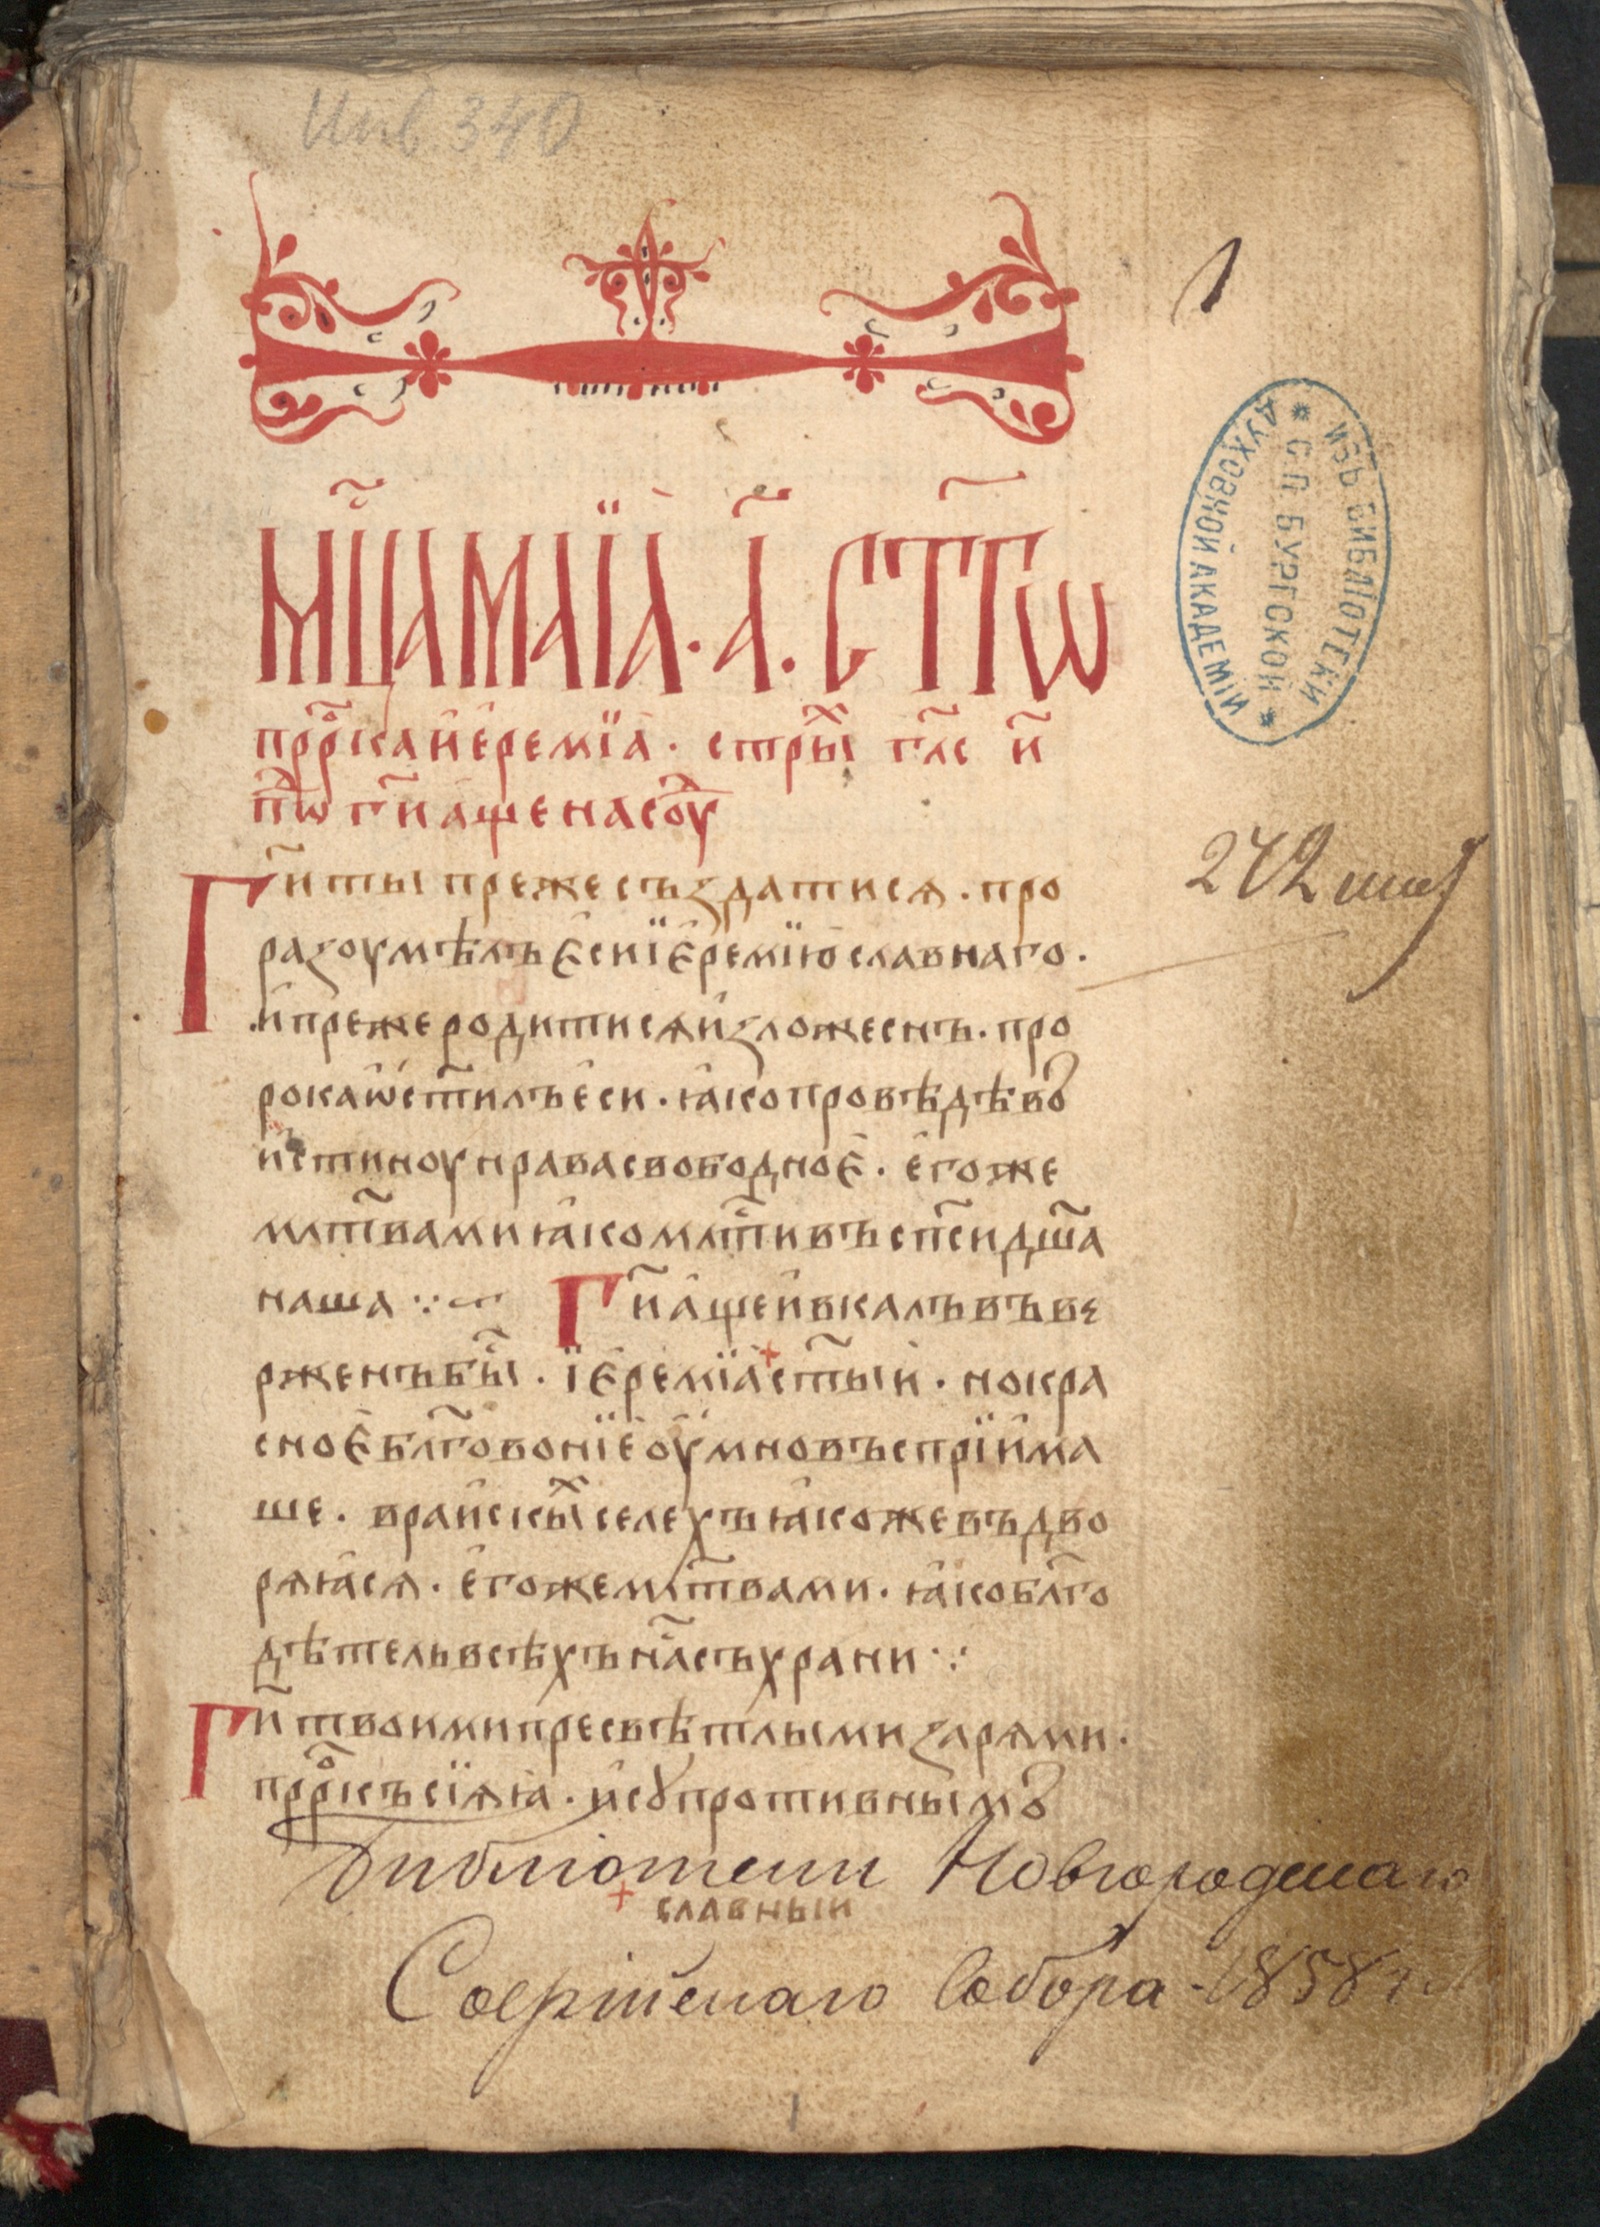 Инв 340
1
Мⷭ҇ЦА МАЇА҃. А҃. СТ҃ГѠ
прⷪ҇рка і҆еремїа. стрⷯы гл҃с и҃
пⷣѡ гⷭ҇и аще на сꙋⷣ
Ги҃ ты преже създатися. про
разоумѣлъ єси їєремїю славнаго.
и преже родитися изложеснъ. про
рока ѡст҃илъ еси. ꙗко провѣдѣ во
истиноу нрава свободноє. егоже
мл҃твами ꙗко млⷭ҇тивъ сп҃си дш҃а
наша ⁘ Ги҃ аще и в калъ въве
рженъ бы҃. їєремїа + ст҃ый. но кра
сноє бл҃говонїе оумно въспрїима
ше. в райскыⷯ селехъ ꙗкоже въдво
ряꙗся. егоже мл҃твами. ꙗко бл҃го
дѣтель всѣхъ на҃с съхрани ⁘
Ги҃ твоими пресвѣтлыми зарями.
прⷪ҇ркъ сїяꙗ. и сꙋпротивнымъ
Библіотеки Новгородскаго
+ славный
Софійскаго Собора 1858 г.
ИЗЪ БИБЛІОТЕКИ
* С.П. БУРГСКОЙ *
ДУХОВНОЙ АКАДЕМІИ